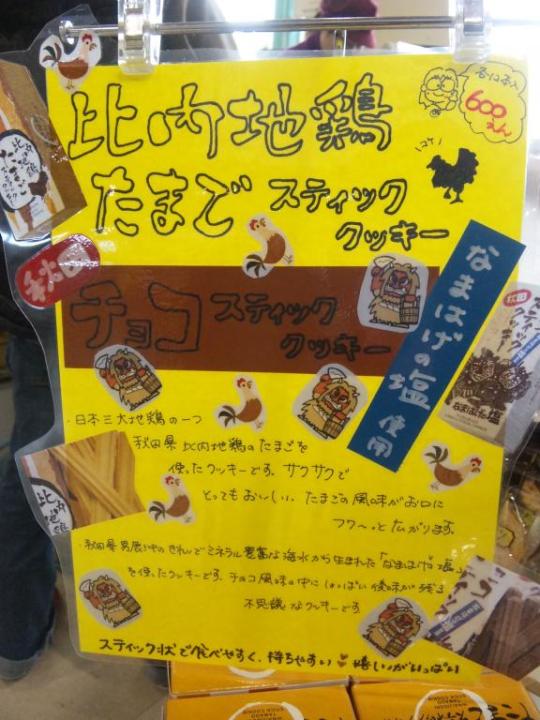 各12本入
600えん
比内地鶏
コケー
たまごスティック
クッキー
秋田
チョコスティック
クッキー
なまはげの塩使用
・日本三大地鶏の一つ
秋田県比内地鶏のたまごを
使ったクッキーです。サクサクで
とってもおいしい。たまごの風味がお口に
フワ〜っと広がります。
・秋田県男鹿沖のきれいでミネラル豊富な海水から生まれた「なまはげの塩」
を使ったクッキーです。チョコ風味の中にしょっぱい後味が残る
不思議なクッキーです
スティック状で食べやすく、持ちやすい♥嬉しいがいっぱい